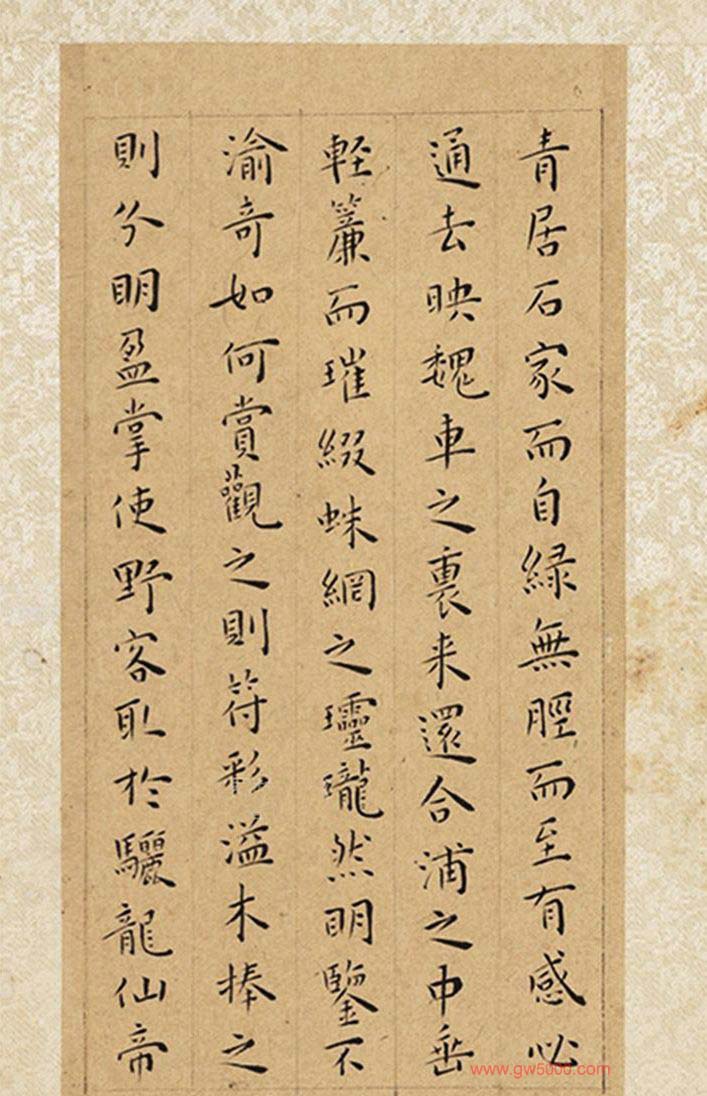 青居石家而自緑無脛而至有感必
通去映魏車之裏来還合浦之中垂
軽簾而璀綴蛛網之瓏然明鑒不
渝奇如何賞觀之則符彩溢木捧之
則分明盈掌使野客取於驪龍仙帝
www.gw5000.com